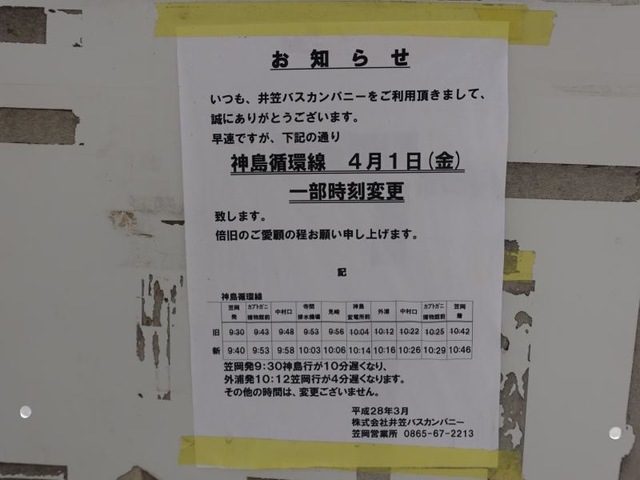 お知らせ
いつも、井笠バスカンパニーをご利用頂きまして、
誠にありがとうございます。
早速ですが、下記の通り
神島循環線 4月1日(金)
一部時刻変更
致します。
倍旧のご愛顧の程お願い申し上げます。
記
神島循環線
笠岡発 カブトガニ博物館前 中村口 寺間排水機場 見崎 神島変電所前 外浦 中村口 カブトガニ博物館前 笠岡着
旧 9:30 9:43 9:48 9:53 9:56 10:04 10:12 10:22 10:25 10:42
新 9:40 9:53 9:58 10:03 10:06 10:14 10:16 10:26 10:29 10:46
笠岡発9:30神島行が10分遅くなり、
外浦発10:12笠岡行が4分遅くなります。
その他の時間は、変更ございません。
平成28年3月
株式会社井笠バスカンパニー
笠岡営業所 0865-67-2213